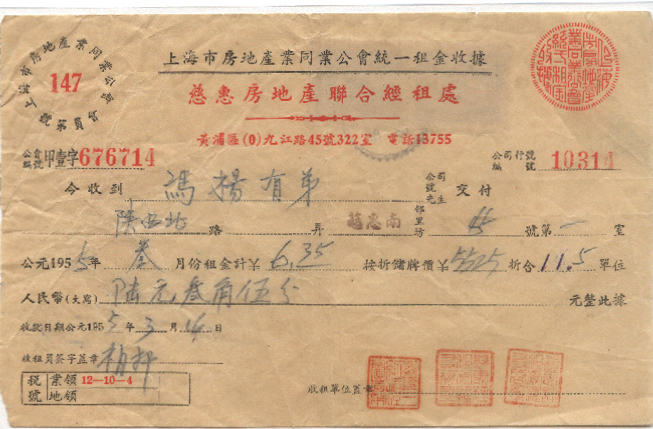 上海市房地產業同業公會
會員第
147
號
上海市房地產業同業公會統一租金收據
慈惠房地產聯合經租處
黃浦區(0)九江路45號322室 電話13755
公會編號 甲壹字676714
公司行號編號 10314
今收到 馮楊有弟 公司 寶號 先生 交付
陕西北 路 弄 里 坊 45 號第一 室
公元1955年叁月份租金計¥6.35 按折儲牌價¥.5525折合11.5單位
人民幣(大寫)陆元叁角伍分 元整此據
收款日期公元1955年3月14日
經租員簽字蓋章
稅號 業領 12-10-4
地領
收租單位蓋章